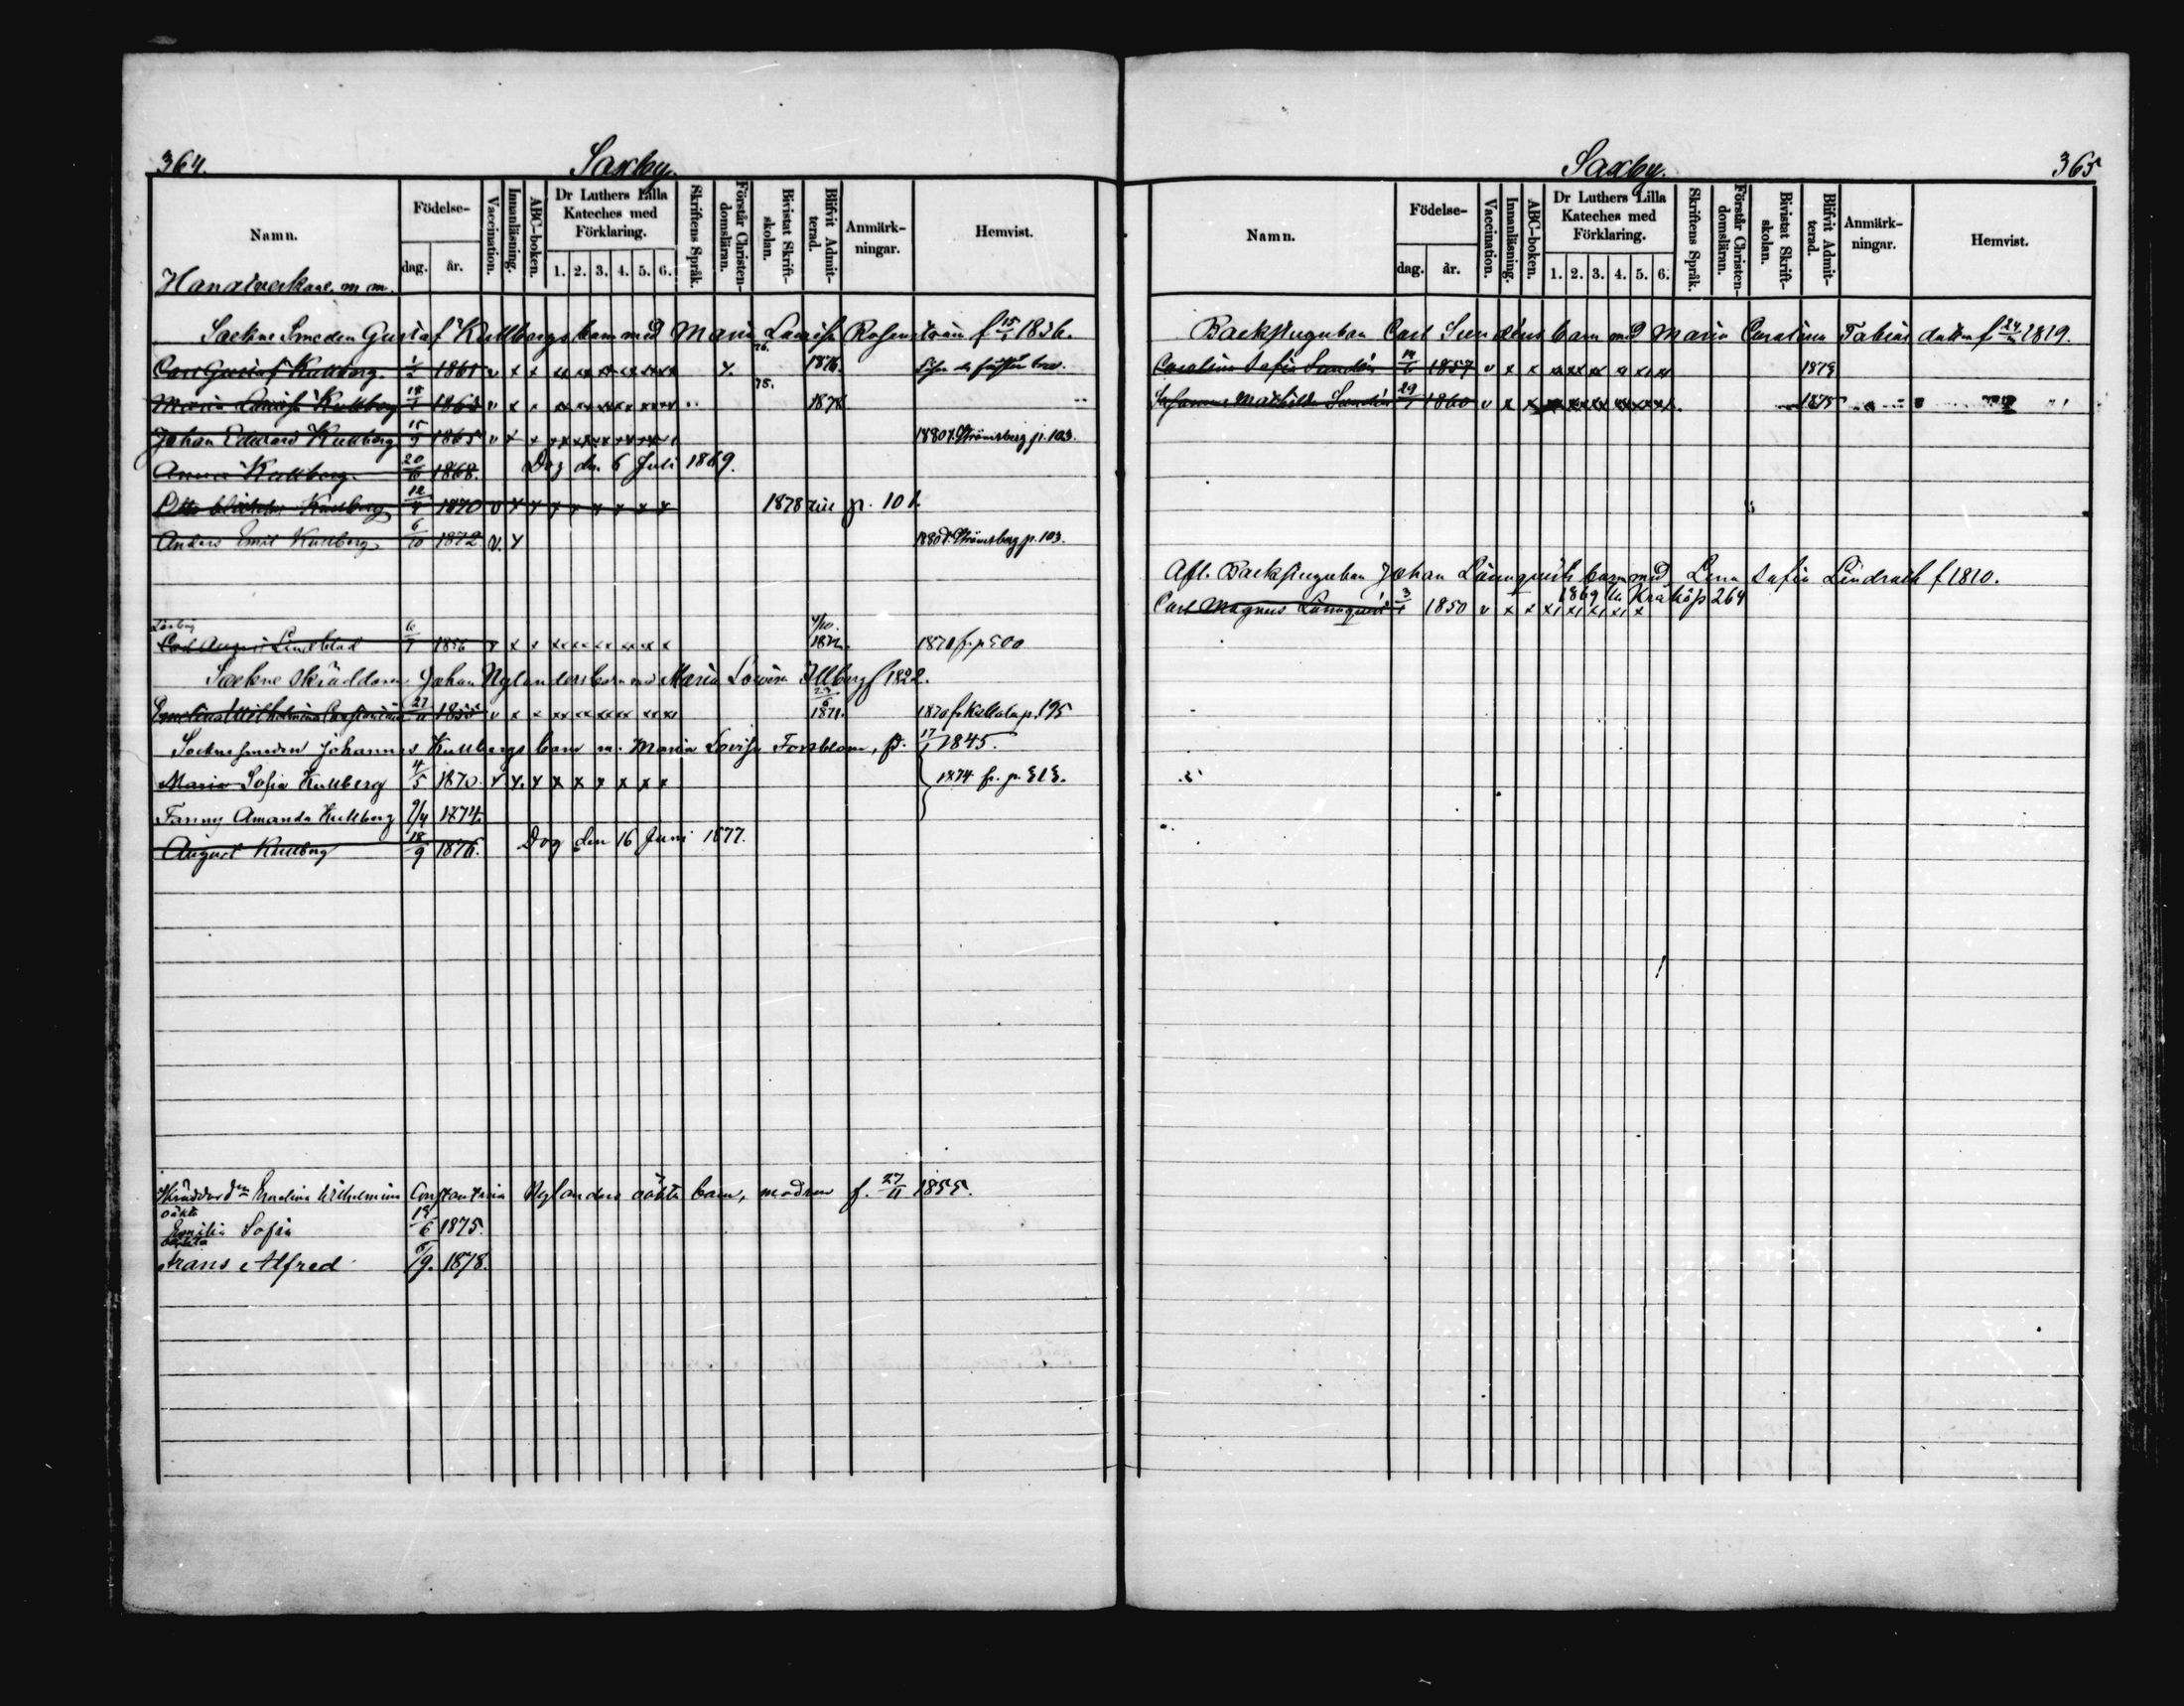 364.
Saxby.
Namn.
Födelse-
dag.
år.
Vaccination.
Innanläsning.
ABC-boken.
Dr Luthers Lilla
Kateches med
Förklaring.
1. 2. 3. 4. 5. 6.
Skriftens Språk.
Förstår Christen-
domsläran.
Bivistat Skrift-
skolan.
Blifvit Admit-
terad.
Anmärk-
ningar.
Hemvist.
Handtverkare m m.
Sockne Smeden Gustaf Kullbergs barn med Maria Lovisa f 15/1 1836.
Carl Gustaf Kullberg 1/2 1861 v x x xx xx xx xx xx xx x. 76. 1876.
Maria Lovisa Kullberg 18/1 1863 v x x xx xx xx xx xx xx 78. 1878
Johan Edvard Kullberg 15/5 1865 v x x xx xx xx xx xx 1880 t. Strömsberg p. 103.
Anna Kullberg 20/6 1868. Dog den 6 Juli 1869.
Otto Kullberg 12/4 1870 v x x x x x x x x 1878 till p. 101.
Anders Emil Kullberg 6/10 1872. v. x 1880 t. Strömsberg p. 103.
Carl August Lindblad 6/7 1856 v x x xx xx xx xx x x 4/10. 1872. 1870 fr. p 500
Sockne Skräddaren Johan Nylanders barn med Maria Lovisa Illberg f 1822.
Emelina Wilhelmina Constantina 27/11 1855 v x x xx xx xx xx xx 23/6 1871. 1870 fr. Kallola p. 195
Sockne smeden Johannes Kullbergs barn m. Maria Lovisa Forsblom, f. 17/1 1845.
Maria Sofia Kullberg 4/5 1870. x x. x x x x x x x 1874 fr. p. 313.
Fanny Amanda Kullberg 9/4 1874.
August Kullberg 18/9 1876. Dog den 16 Juni 1877.
Emelina Wilhelmina Constantia Nylanders oäkta barn, modren f. 27/11 1855.
oäkta
Emilia Sofia 19/6 1875.
oäkta
Frans Alfred 6/9. 1878.
Saxby.
365
Namn.
Födelse-
dag.
år.
Vaccination.
Innanläsning.
ABC-boken.
Dr Luthers Lilla
Kateches med
Förklaring.
1. 2. 3. 4. 5. 6.
Skriftens Språk.
Förstår Christen-
domsläran.
Bivistat Skrift-
skolan.
Blifvit Admit-
terad.
Anmärk-
ningar.
Hemvist.
Backstugubon Carl Sundéns barn med Maria Carolina Fabiasdotter f 1819.
Carolina Sofia Sundén 1857 v x x xx xx xx x xx xx
Johanna Mathilda Sundén 29/1 1860 v x x xx xx xx xx xx xx 1875
Afl. Backstugubon Johan Lönnqvists barn med Lena Sofia f 1810.
Carl Magnus Lönnqvist 3/1 1850 v x x x x x x x 1869 till Kråkö p 264